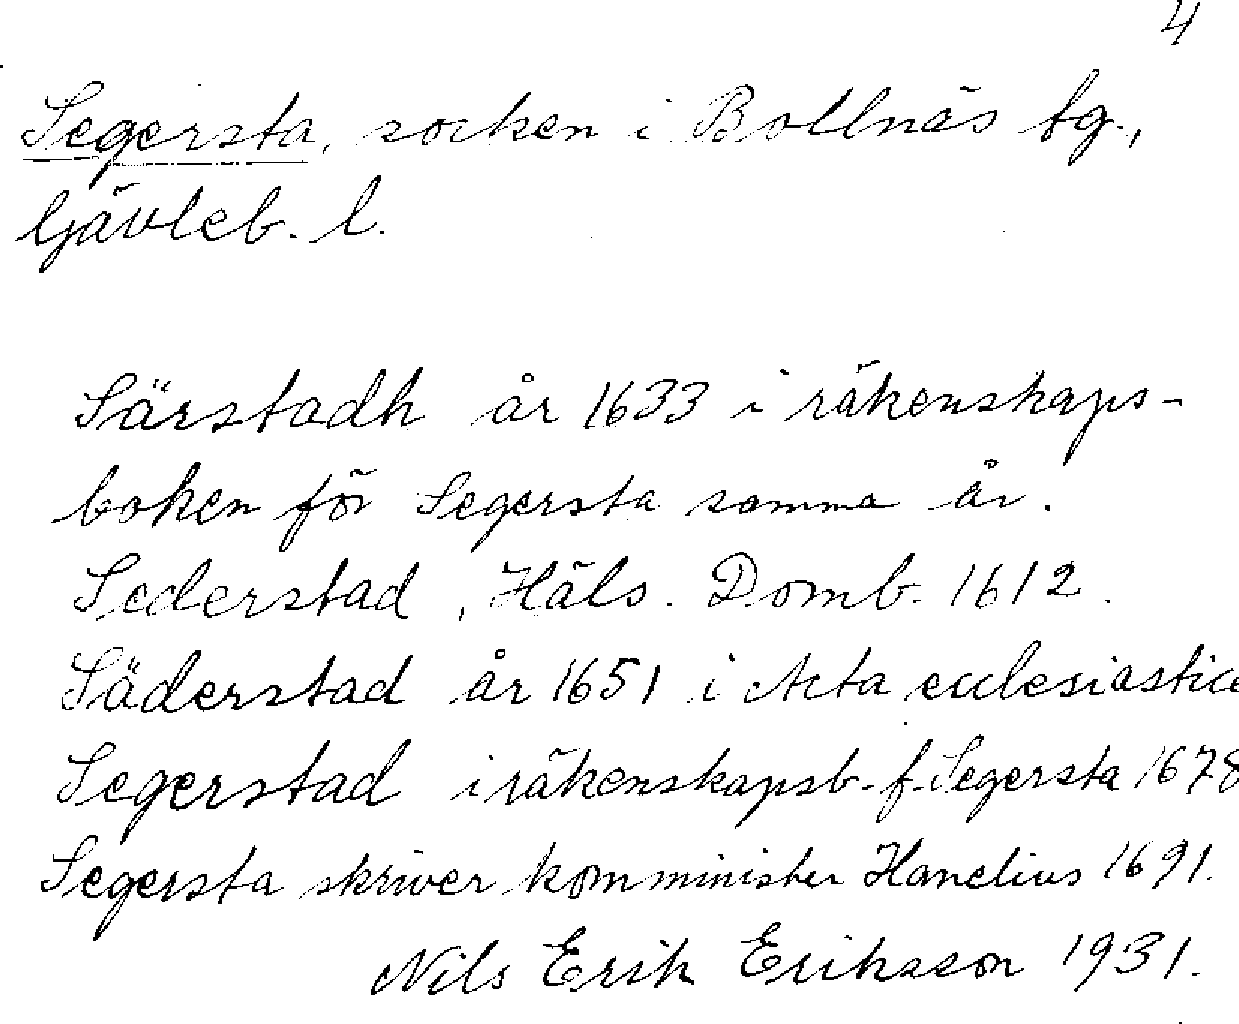 4
Segersta, socken i Bollnäs tg.,
Gävleb. l.
Särstadh år 1633 i räkenskaps-
boken för Segersta samma år.
Sederstad, Häls. Domb. 1612.
Säderstad år 1651 i Acta ecclesiastica
Segerstad i räkenskapsb. f. Segersta 1678
Segersta skriver komminister Hanelius 1691.
Nils Erik Eriksson 1931.